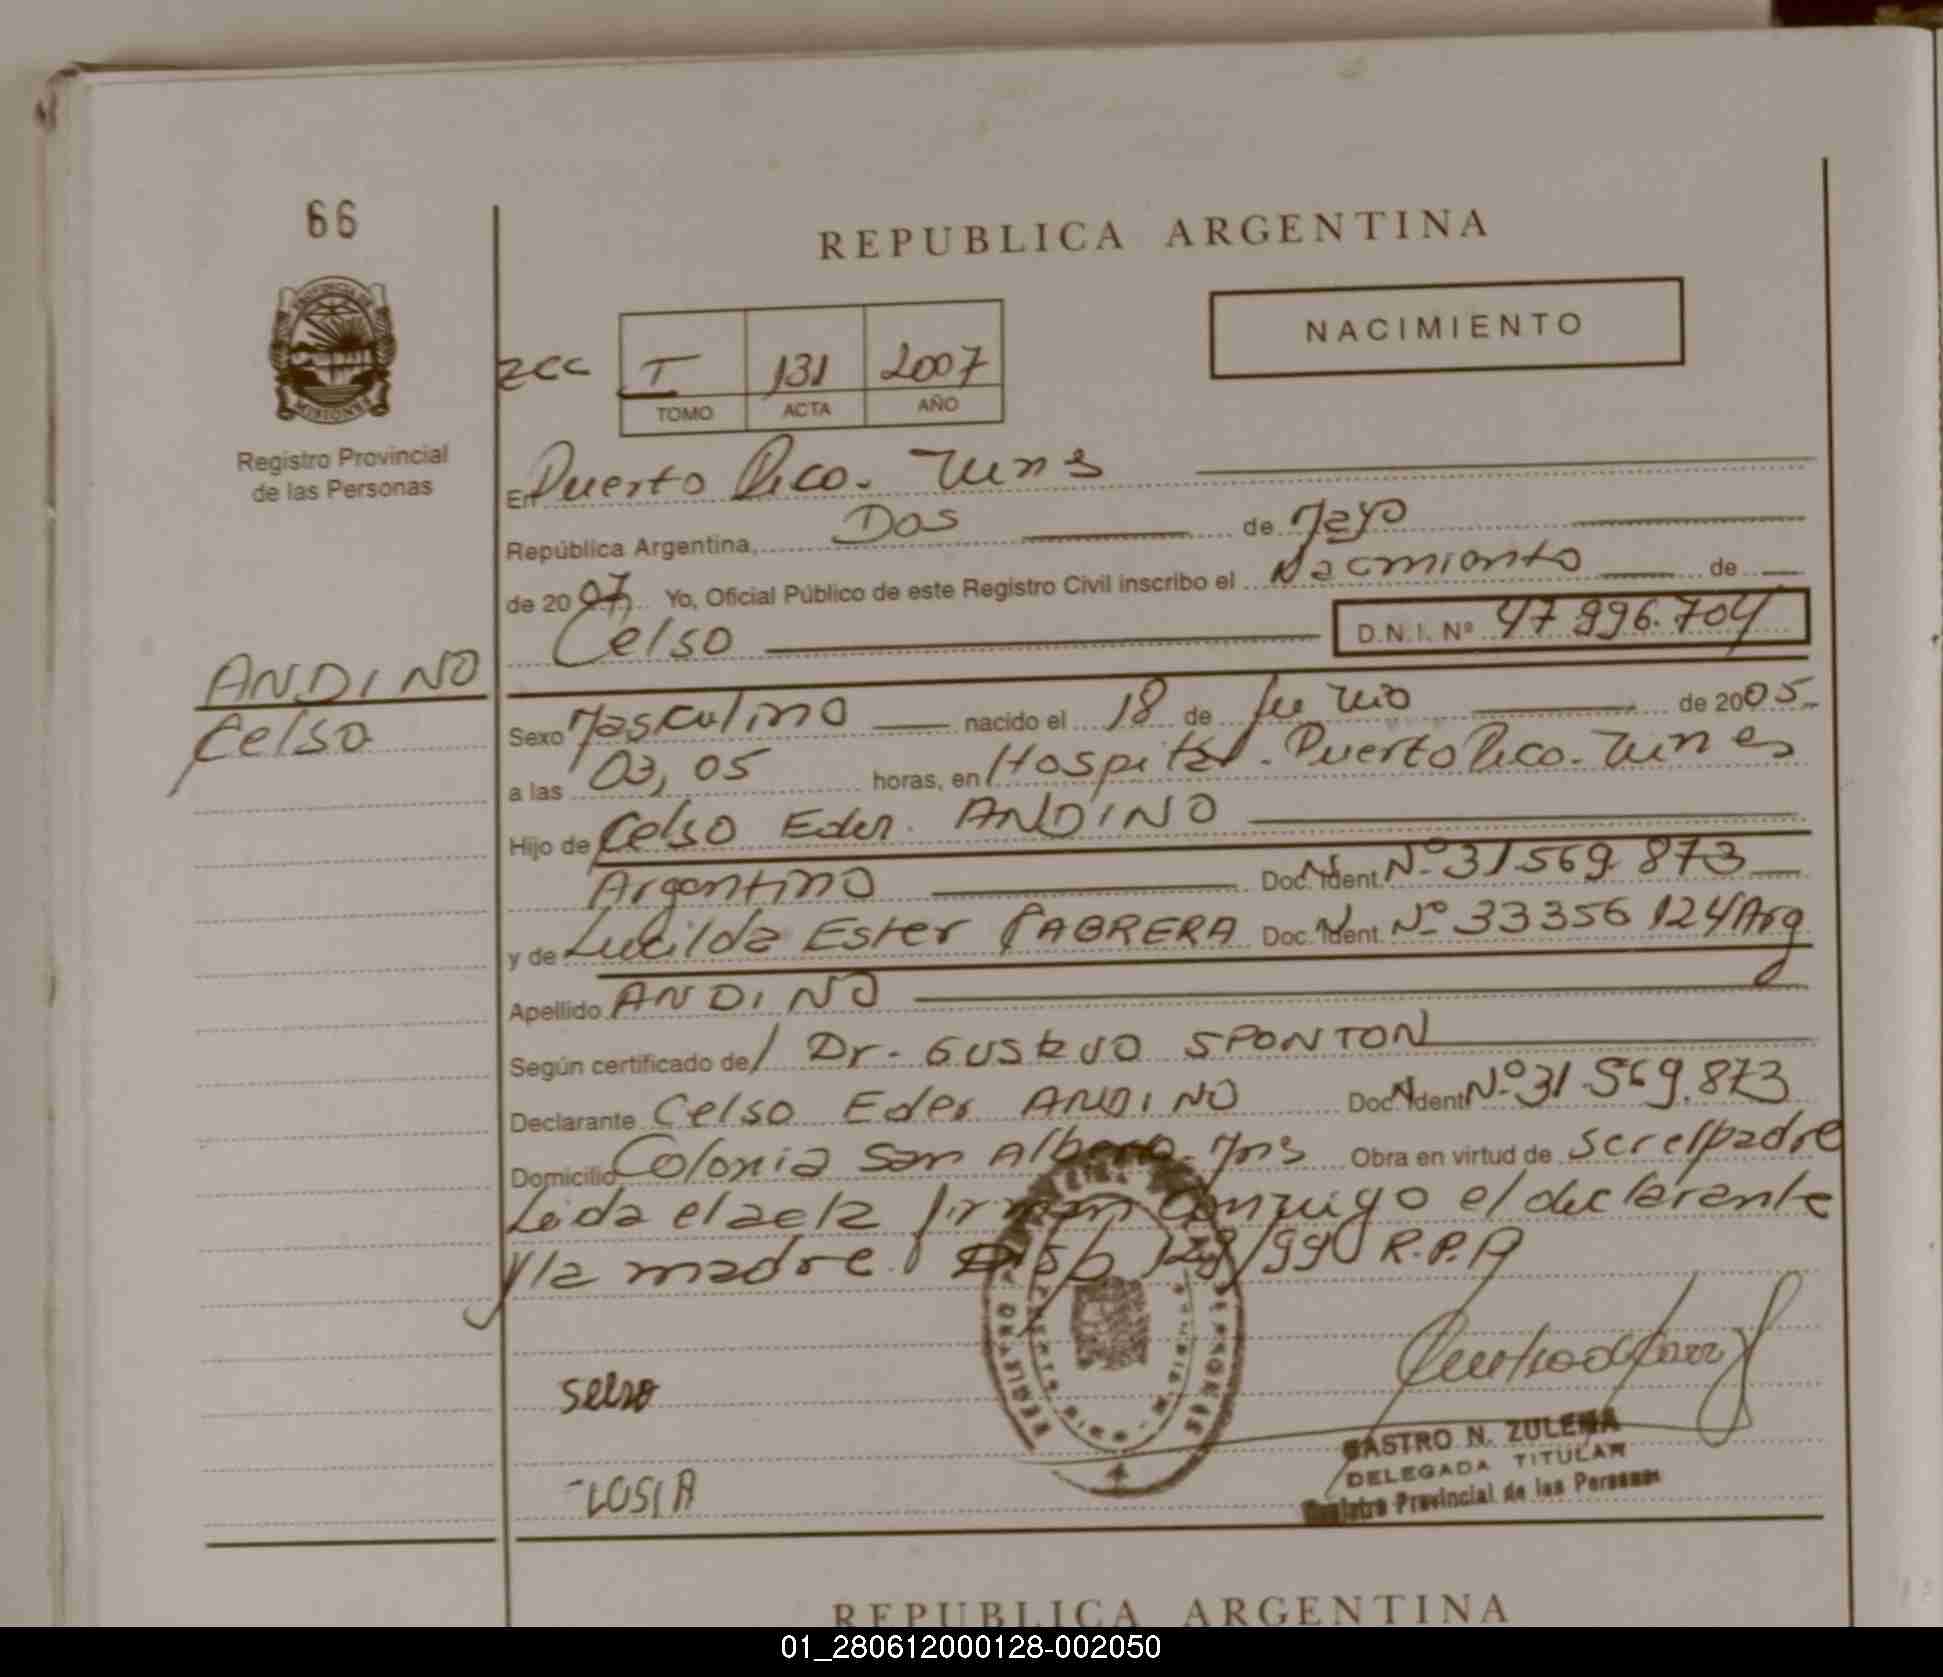 66
REPUBLICA ARGENTINA
PROVINCIA DE
MISIONES
NACIMIENTO
I 131 2007
TOMO ACTA AÑO
Registro Provincial
de las Personas
En Puerto Rico.
República Argentina, Dos de Mayo
de 2007 Yo, Oficial Público de este Registro Civil inscribo el Nacimiento de
Celso D.N.I. Nº 47 996.704
ANDINO
Celso
Sexo Masculino nacido el 18 de de 2005
a las 03,05 horas, en Hospital. Puerto Rico.
Hijo de Celso Eder. ANDINO
Argentino Doc. Ident. Nº 31569 873
y de Lucilda Ester CABRERA Doc. Ident. Nº 33356 124 Arg
Apellido ANDINO
Según certificado de Dr. Gustavo SPONTON
Declarante Celso Eder ANDINO Doc. Ident. Nº 31.569.873
Domicilio Colonia San Alberto Mns Obra en virtud de ser el padre
Leida el acta firman conmigo el declarante
y la madre Disp 128/99 R.P.A
CASTRO N. ZULEMA
DELEGADA TITULAR
Registro Provincial de las Personas
REPUBLICA ARGENTINA
01_280612000128-002050